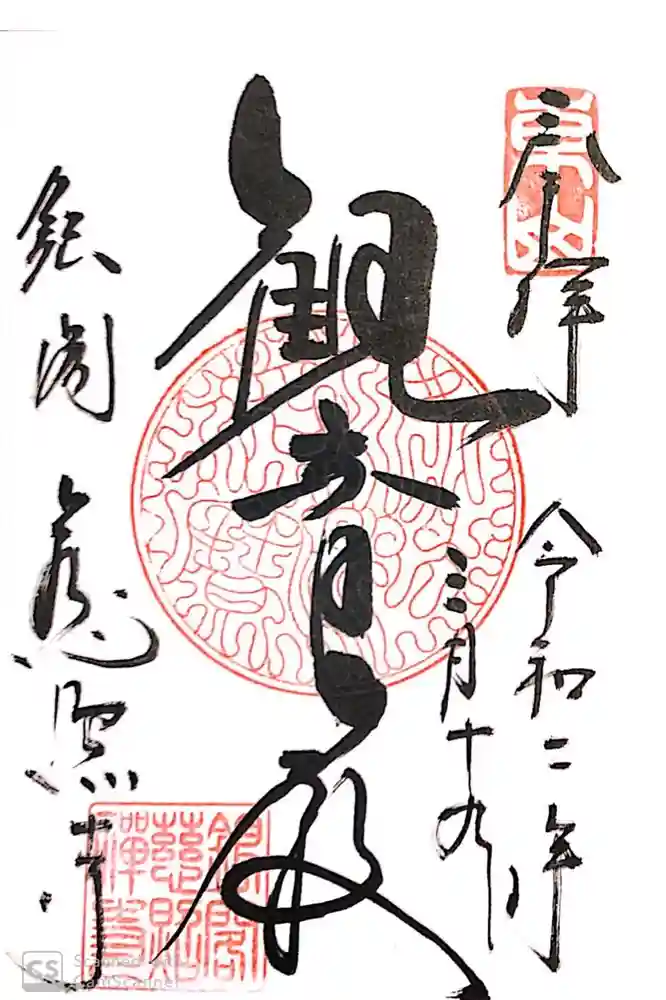 奉拝
令和二年
三月十九日
観音殿
銀閣 慈照寺
東山
銀閣
慈照
禅寺
CS Scanned with
CamScanner